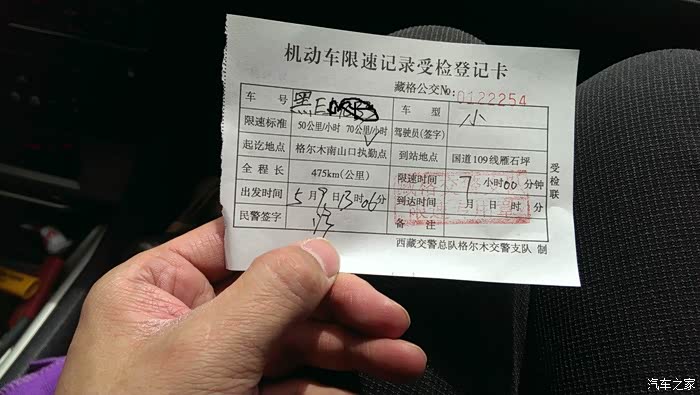 机动车限速记录受检登记卡
藏格公交No: 0122254
车 号 黑E 车 型 小
限速标准 50公里/小时 70公里/小时 驾驶员(签字)
起讫地点 格尔木南山口执勤点 到站地点 国道109线雁石坪
全程长 475km(公里) 限速时间 7 小时00分钟
出发时间 5月9日13时06分 到达时间 月 日 时 分
民警签字 备 注
受检联
西藏交警总队格尔木交警支队 制
汽车之家